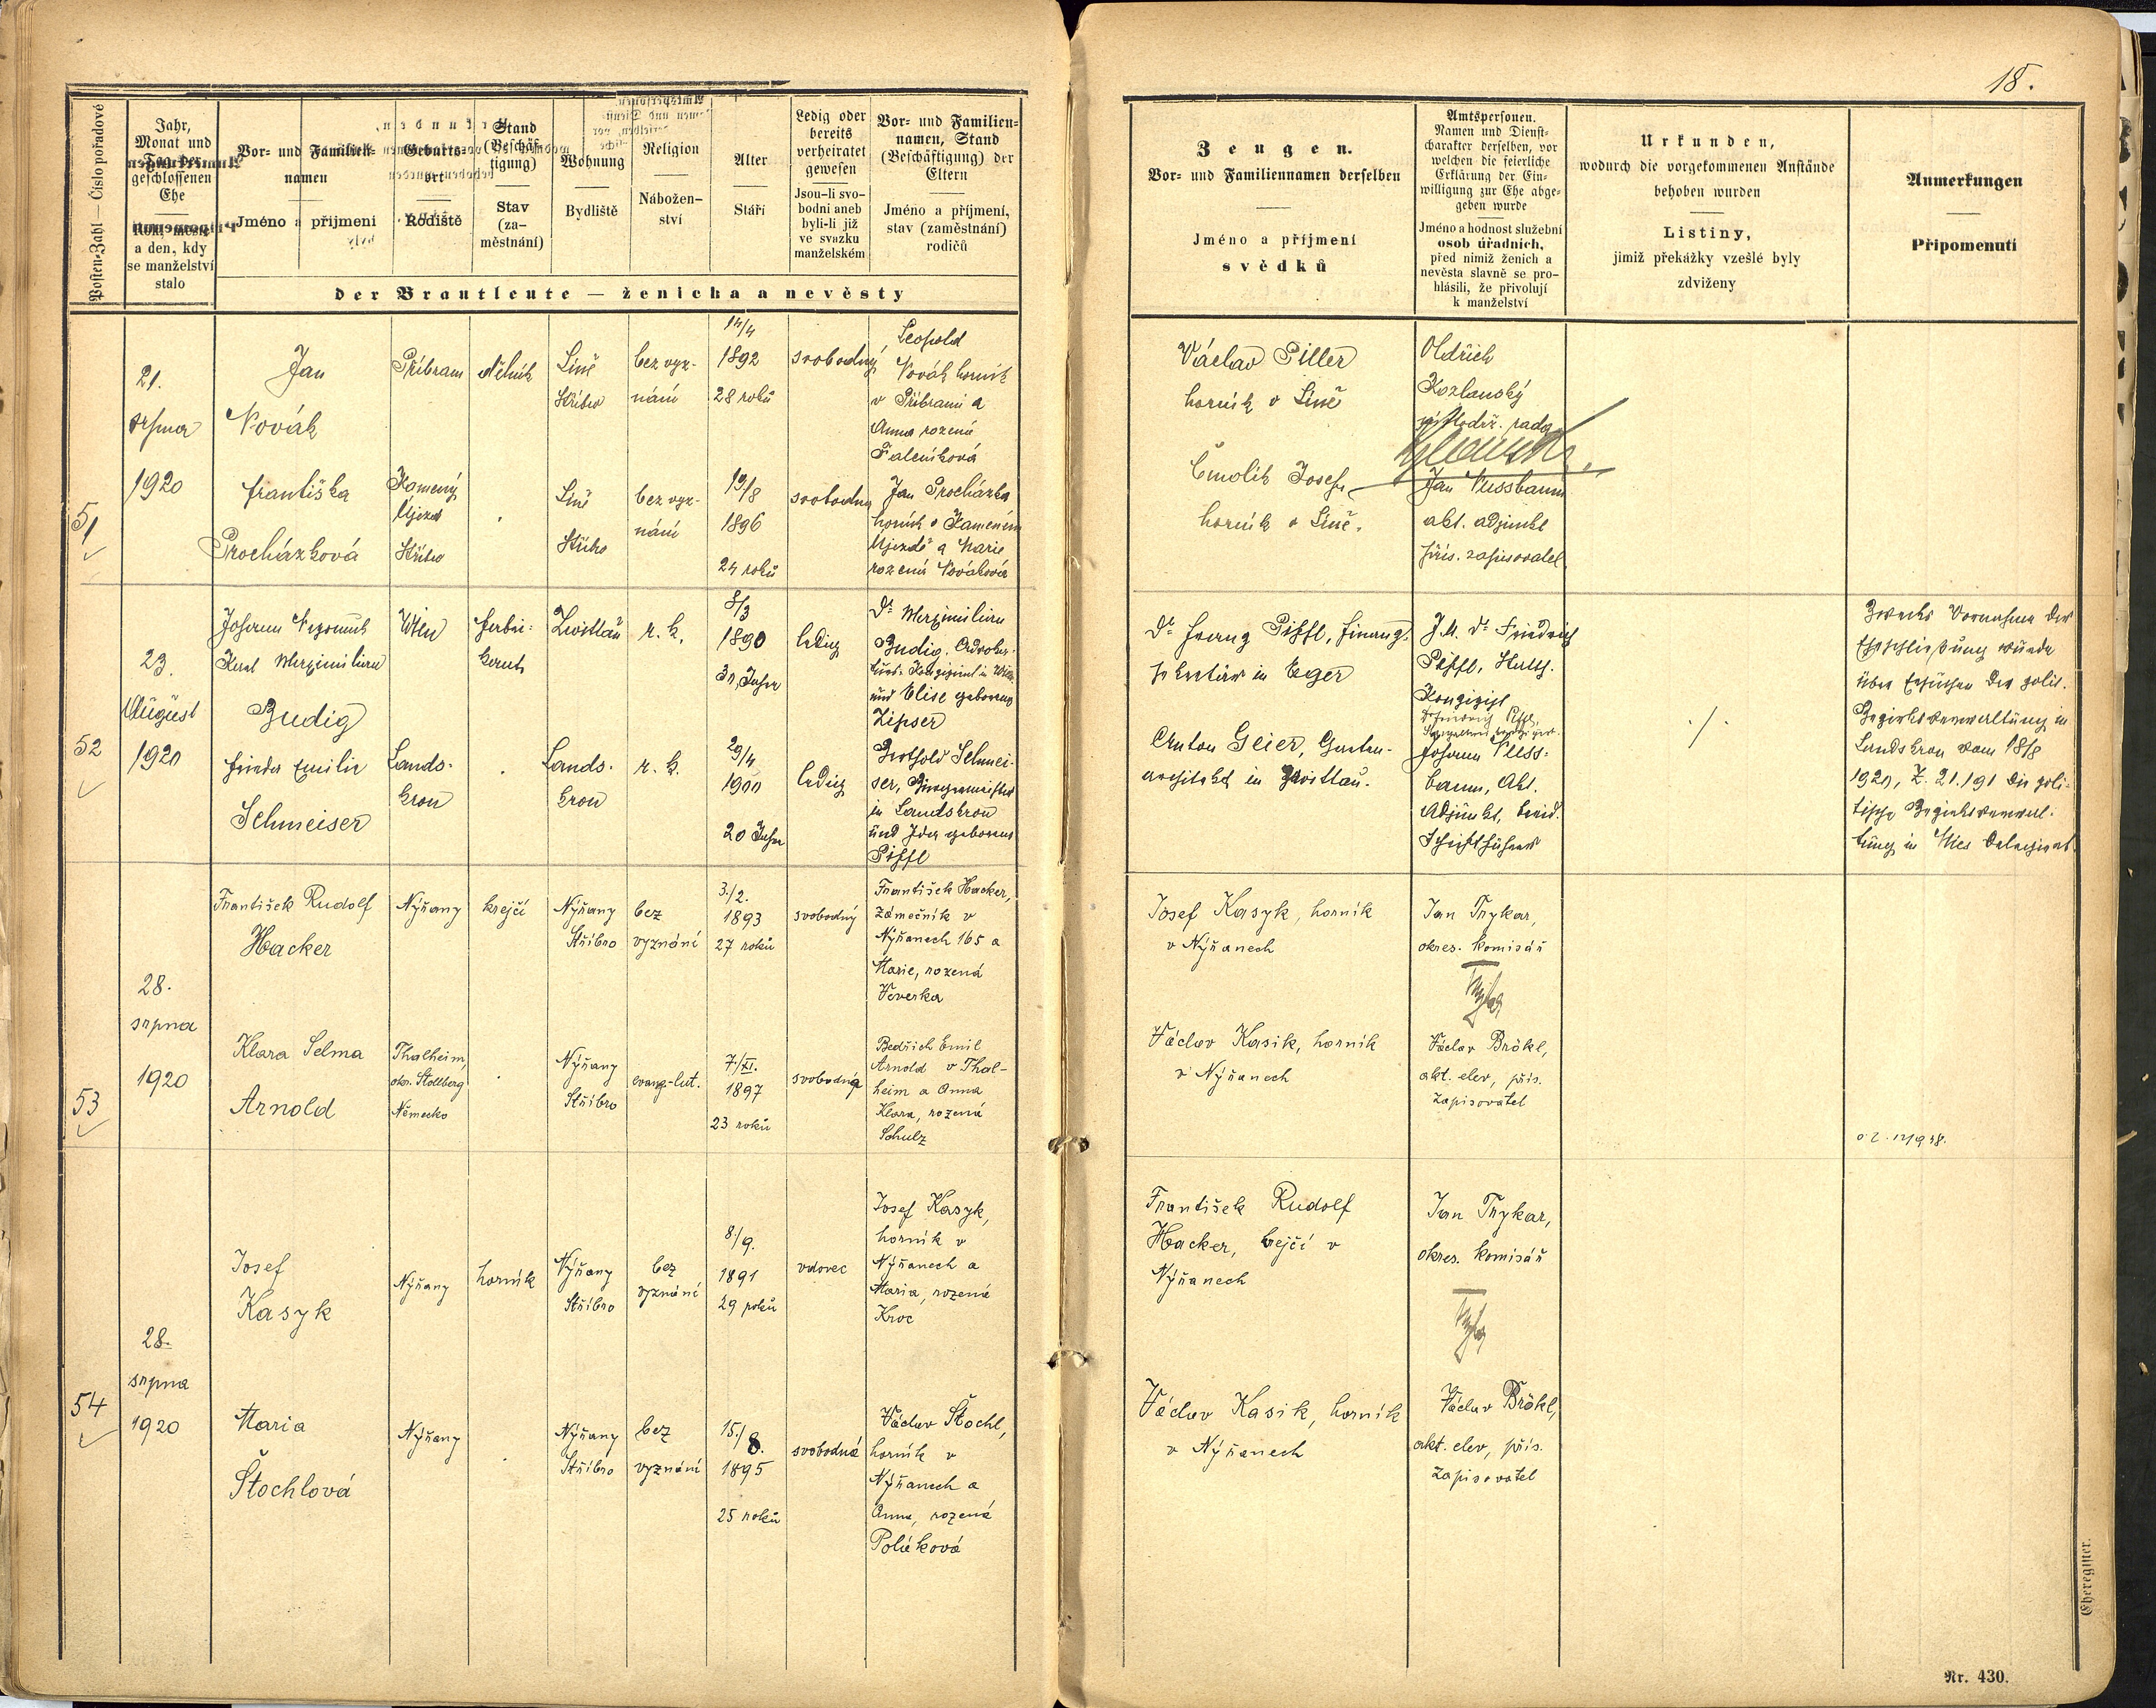 18.
Posten-Zahl — Číslo pořadové
Jahr,
Monat und
Tag der
geschlossenen
Ehe
Rok, měsíc
a den, kdy
se manželství
stalo
Vor- und Familien-
namen
Jméno a příjmení
Geburts-
ort
Rodiště
Stand
(Beschäf-
tigung)
Stav
(za-
městnání)
Wohnung
Bydliště
Religion
Nábožen-
ství
Alter
Stáří
Ledig oder
bereits
verheiratet
gewesen
Jsou-li svo-
bodni aneb
byli-li již
ve svazku
manželském
Vor- und Familien-
namen, Stand
(Beschäftigung) der
Eltern
Jméno a příjmení,
stav (zaměstnání)
rodičů
der Brautleute — ženicha a nevěsty
Zeugen.
Vor- und Familiennamen derselben
Jméno a příjmení
svědků
Amtspersonen.
Namen und Dienst-
charakter derselben, vor
welchen die feierliche
Erklärung der Ein-
willigung zur Ehe abge-
geben wurde
Jméno a hodnost služební
osob úředních,
před nimiž ženich a
nevěsta slavně se pro-
hlásili, že přivolují
k manželství
Urkunden,
wodurch die vorgekommenen Anstände
behoben wurden
Listiny,
jimiž překážky vzešlé byly
zdviženy
Anmerkungen
Připomenutí
51
21.
srpna
1920
Jan
Novák
Příbram
dělník
Líně
Stříbro
bez vyz-
nání
14/4
1892
28 roků
svobodný
Leopold
Novák horník
v Příbrami a
Anna rozená
Františka
Procházková
Kamený
Újezd
Stříbro
Líně
Stříbro
bez vyz-
nání
19/8
1896
24 roků
svobodna
Jan Procházka
horník v Kameném
Újezdě a Marie
rozená Nováková
Václav Piller
horník v Líně
Čmolik Josef
horník v Líně.
Oldřich
Kozlanský
místodrž. rada
Jan Nussbaum
akt. adjunkt
přís. zapisovatel
52
23.
August
1920
Johann Nepomuk
Karl Maximilian
Budig
Wien
Fabri-
kant
Zwittau
r. k.
8/3
1890
30 Jahre
ledig
Dr Maximilian
Budig, Advokat
und Elise geborene
Zipser
Frieda Emilie
Schmeiser
Lands-
kron
Lands-
kron
r. k.
29/4
1900
20 Jahre
ledig
Berthold Schmei-
ser, Bürgermeister
in Landskron
und Ida geborene
Piffl
Dr Franz Piffl, Finanz-
sekretär in Eger
Anton Geier, Garten-
architekt in Zwittau.
J.U. Dr Friedrich
Piffl, Statth.
Konzipist
Johann Nuss-
baum, Akt.
Adjunkt, beeid.
Schriftführer
./.
Zwecks Vornahme der
Eheschließung wurde
über Ersuchen der polit.
Bezirksverwaltung in
Landskron vom 18/8
1920, Z. 21.191 die poli-
tische Bezirksverwal-
tung in Mies delegiert.
53
28.
srpna
1920
František Rudolf
Hacker
Nýřany
krejčí
Nýřany
Stříbro
bez
vyznání
3./2.
1893
27 roků
svobodný
František Hacker,
zámečník v
Nýřanech 165 a
Marie, rozená
Veverka
Klara Selma
Arnold
Thalheim,
okr. Stollberg
Německo
Nýřany
Stříbro
evang-lut.
7/XI.
1897
23 roků
svobodná
Bedřich Emil
Arnold v Thal-
heim a Anna
Klara, rozená
Schulz
Josef Kasyk, horník
v Nýřanech
Václav Kasik, horník
v Nýřanech
Jan Trykar,
okres. komisář
Václav Brökl,
akt. elev, přís.
zapisovatel
54
28.
srpna
1920
Josef
Kasyk
Nýřany
horník
Nýřany
Stříbro
bez
vyznání
8./9.
1891
29 roků
vdovec
Josef Kasyk,
horník v
Nýřanech a
Maria, rozená
Kroc
Maria
Štochlová
Nýřany
Nýřany
Stříbro
bez
vyznání
15./8.
1895
25 roků
svobodná
Václav Štochl,
horník v
Nýřanech a
Anna, rozená
Poláková
František Rudolf
Hacker, krejčí v
Nýřanech
Václav Kasik, horník
v Nýřanech
Jan Trykar,
okres. komisář
Václav Brökl,
akt. elev, přís.
zapisovatel
Eheregister.
Nr. 430.